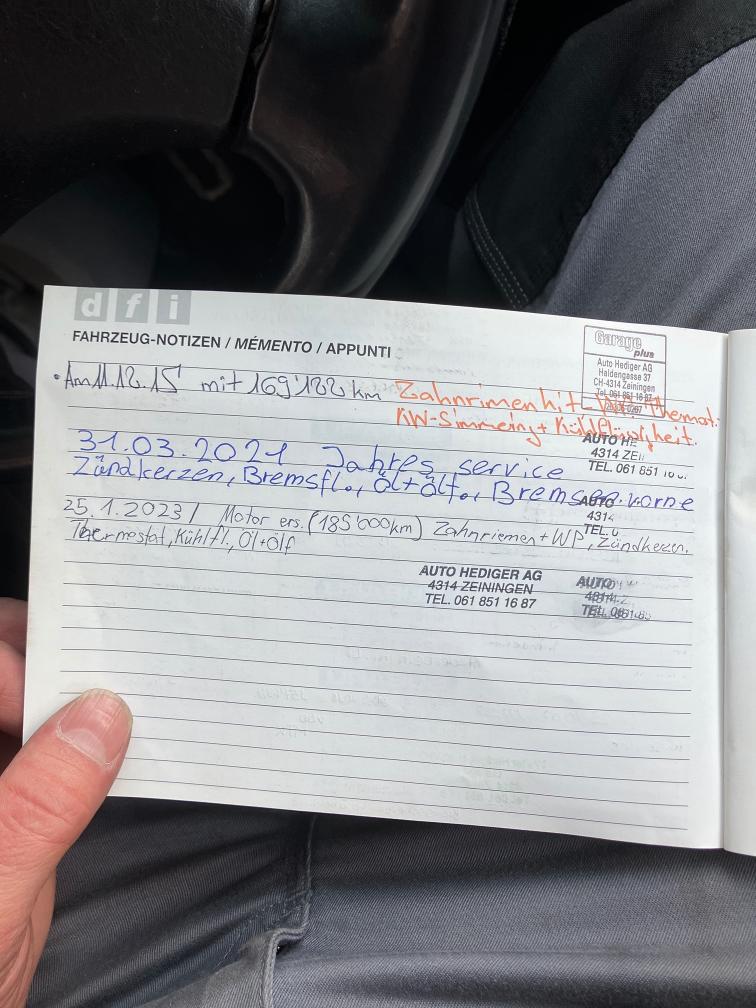 dfi
FAHRZEUG-NOTIZEN / MÉMENTO / APPUNTI
Garage
plus
Auto Hediger AG
Haldengasse 37
CH-4314 Zeiningen
Tel. 061 851 16 87
• Am 11.12.15 mit 169'122 km Zahnrimenkit- Thermat.
KW-Simmering + Kühlflüssigkeit.
AUTO HE
4314 ZEI
TEL. 061 851 16
31.03.2021 Jahres service
Zündkerzen, Bremsfl., Öl+ölf., Bremsen vorne
AUTO
4314
TEL. 0
25.1.2023 / Motor ers. (185'000km) Zahnriemen + WP, Zündkerzen,
Thermostat, Kühlfl., Öl+Ölf
AUTO HEDIGER AG
4314 ZEININGEN
TEL. 061 851 16 87
AUTO
4314
TEL. 061